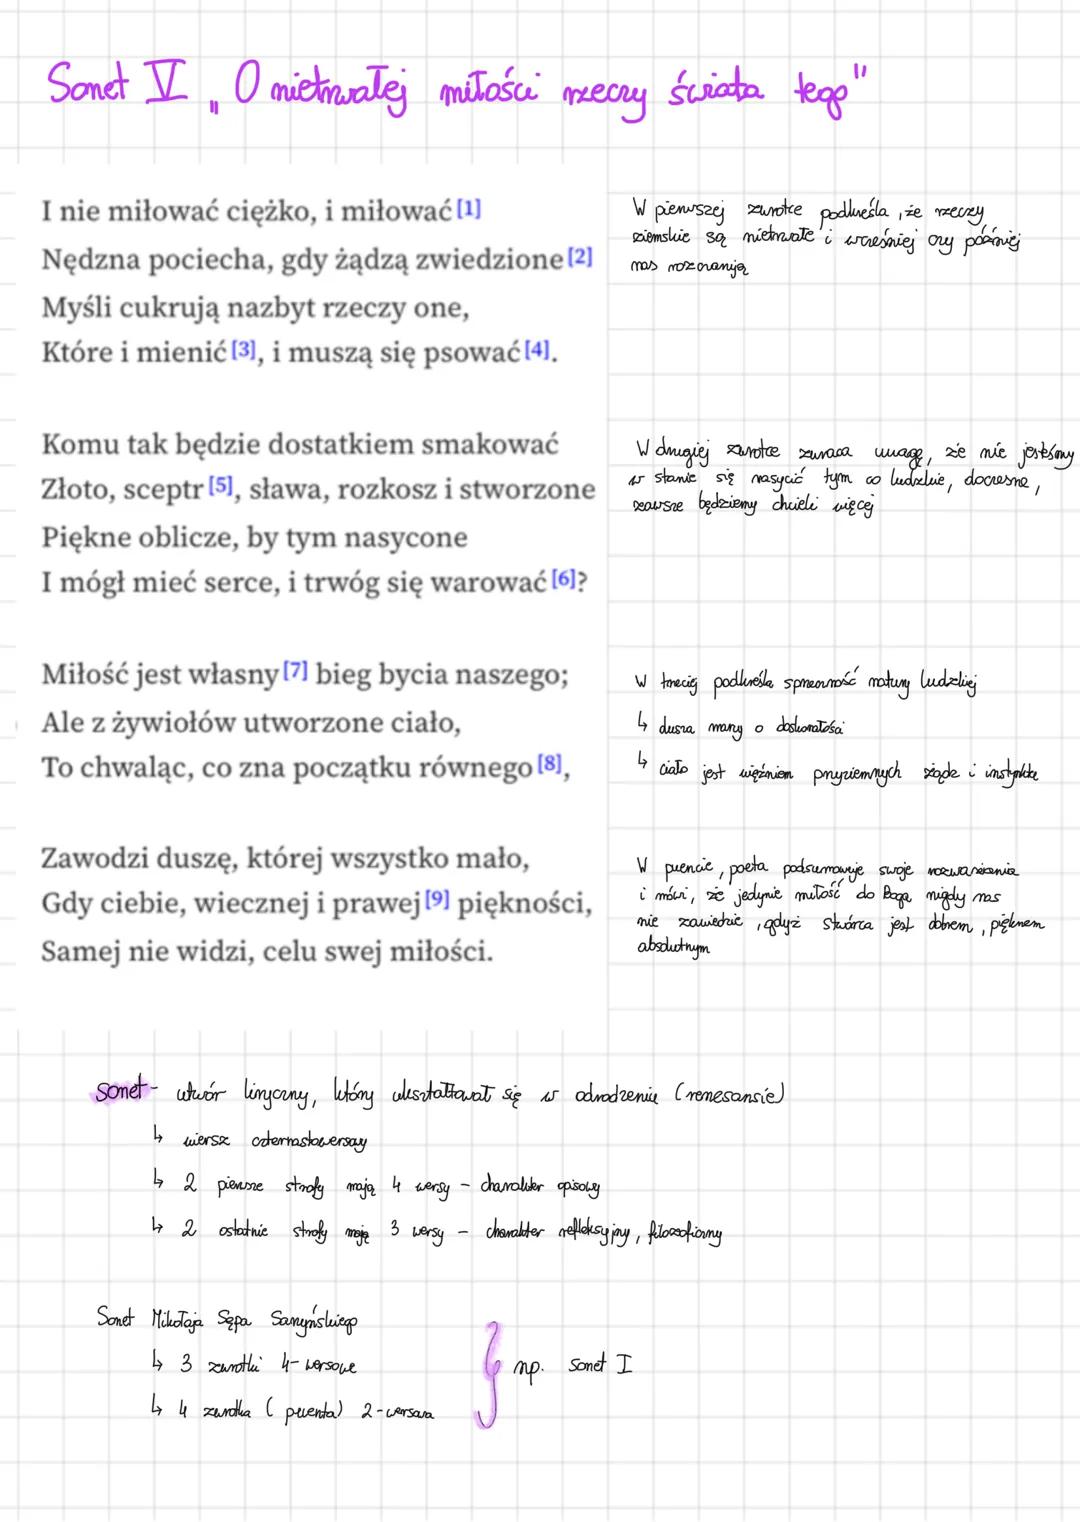 Sonet V „O nietrwałej miłości rzeczy świata tego"
I nie miłować ciężko, i miłować [1]
Nędzna pociecha, gdy żądzą zwiedzione [2]
Myśli cukrują nazbyt rzeczy one,
Które i mienić [3], i muszą się psować [4].
W pierwszej zwrotce podkreśla, że rzeczy
ziemskie są nietrwałe i wcześniej czy później
nas rozczarują
Komu tak będzie dostatkiem smakować
Złoto, sceptr [5], sława, rozkosz i stworzone
Piękne oblicze, by tym nasycone
I mógł mieć serce, i trwóg się warować [6]?
W drugiej zwrotce zwraca uwagę, że nie jesteśmy
w stanie się nasycić tym co ludzkie, doczesne,
zawsze będziemy chcieli więcej
Miłość jest własny [7] bieg bycia naszego;
Ale z żywiołów utworzone ciało,
To chwaląc, co zna początku równego [8],
W trzeciej podkreśla sprzeczność natury ludzkiej
↳ dusza marzy o doskonałości
↳ ciało jest więźniem przyziemnych żądz i instynktów
Zawodzi duszę, której wszystko mało,
Gdy ciebie, wiecznej i prawej [9] piękności,
Samej nie widzi, celu swej miłości.
W puencie, poeta podsumowuje swoje rozważania
i mówi, że jedynie miłość do Boga nigdy nas
nie zawiedzie, gdyż stwórca jest dobrem, pięknem
absolutnym
sonet - utwór liryczny, który ukształtował się w odrodzeniu (renesansie)
↳ wiersz czternastowersowy
↳ 2 pierwsze strofy mają 4 wersy - charakter opisowy
↳ 2 ostatnie strofy mają 3 wersy - charakter refleksyjny, filozoficzny
Sonet Mikołaja Sępa Sarzyńskiego
↳ 3 zwrotki 4-wersowe
↳ 4 zwrotka (puenta) 2-wersowa
np. sonet I